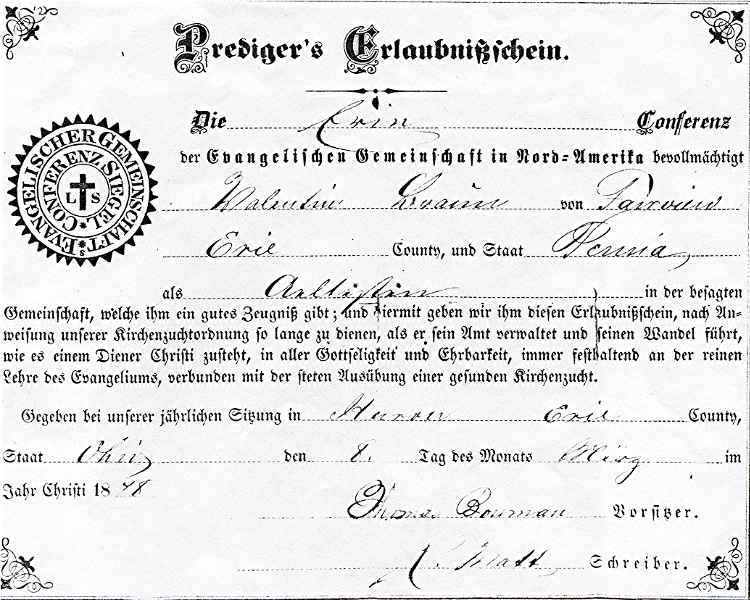 Prediger's Erlaubnißschein.
Die Erie Conferenz
der Evangelischen Gemeinschaft in Nord-Amerika bevollmächtigt
EVANGELISCHER GEMEINSCHAFT'S
CONFERENZ SIEGEL
L S
Valentin Braun von Fairview
Erie County, und Staat Penna
als in der besagten
Gemeinschaft, welche ihm ein gutes Zeugniß gibt; und hiermit geben wir ihm diesen Erlaubnißschein, nach An-
weisung unserer Kirchenzuchtordnung so lange zu dienen, als er sein Amt verwaltet und seinen Wandel führt,
wie es einem Diener Christi zusteht, in aller Gottseligkeit und Ehrbarkeit, immer festhaltend an der reinen
Lehre des Evangeliums, verbunden mit der steten Ausübung einer gesunden Kirchenzucht.
Gegeben bei unserer jährlichen Sitzung in Erie County,
Staat Ohio den 8. Tag des Monats März im
Jahr Christi 18
Bowman Vorsitzer.
Schreiber.